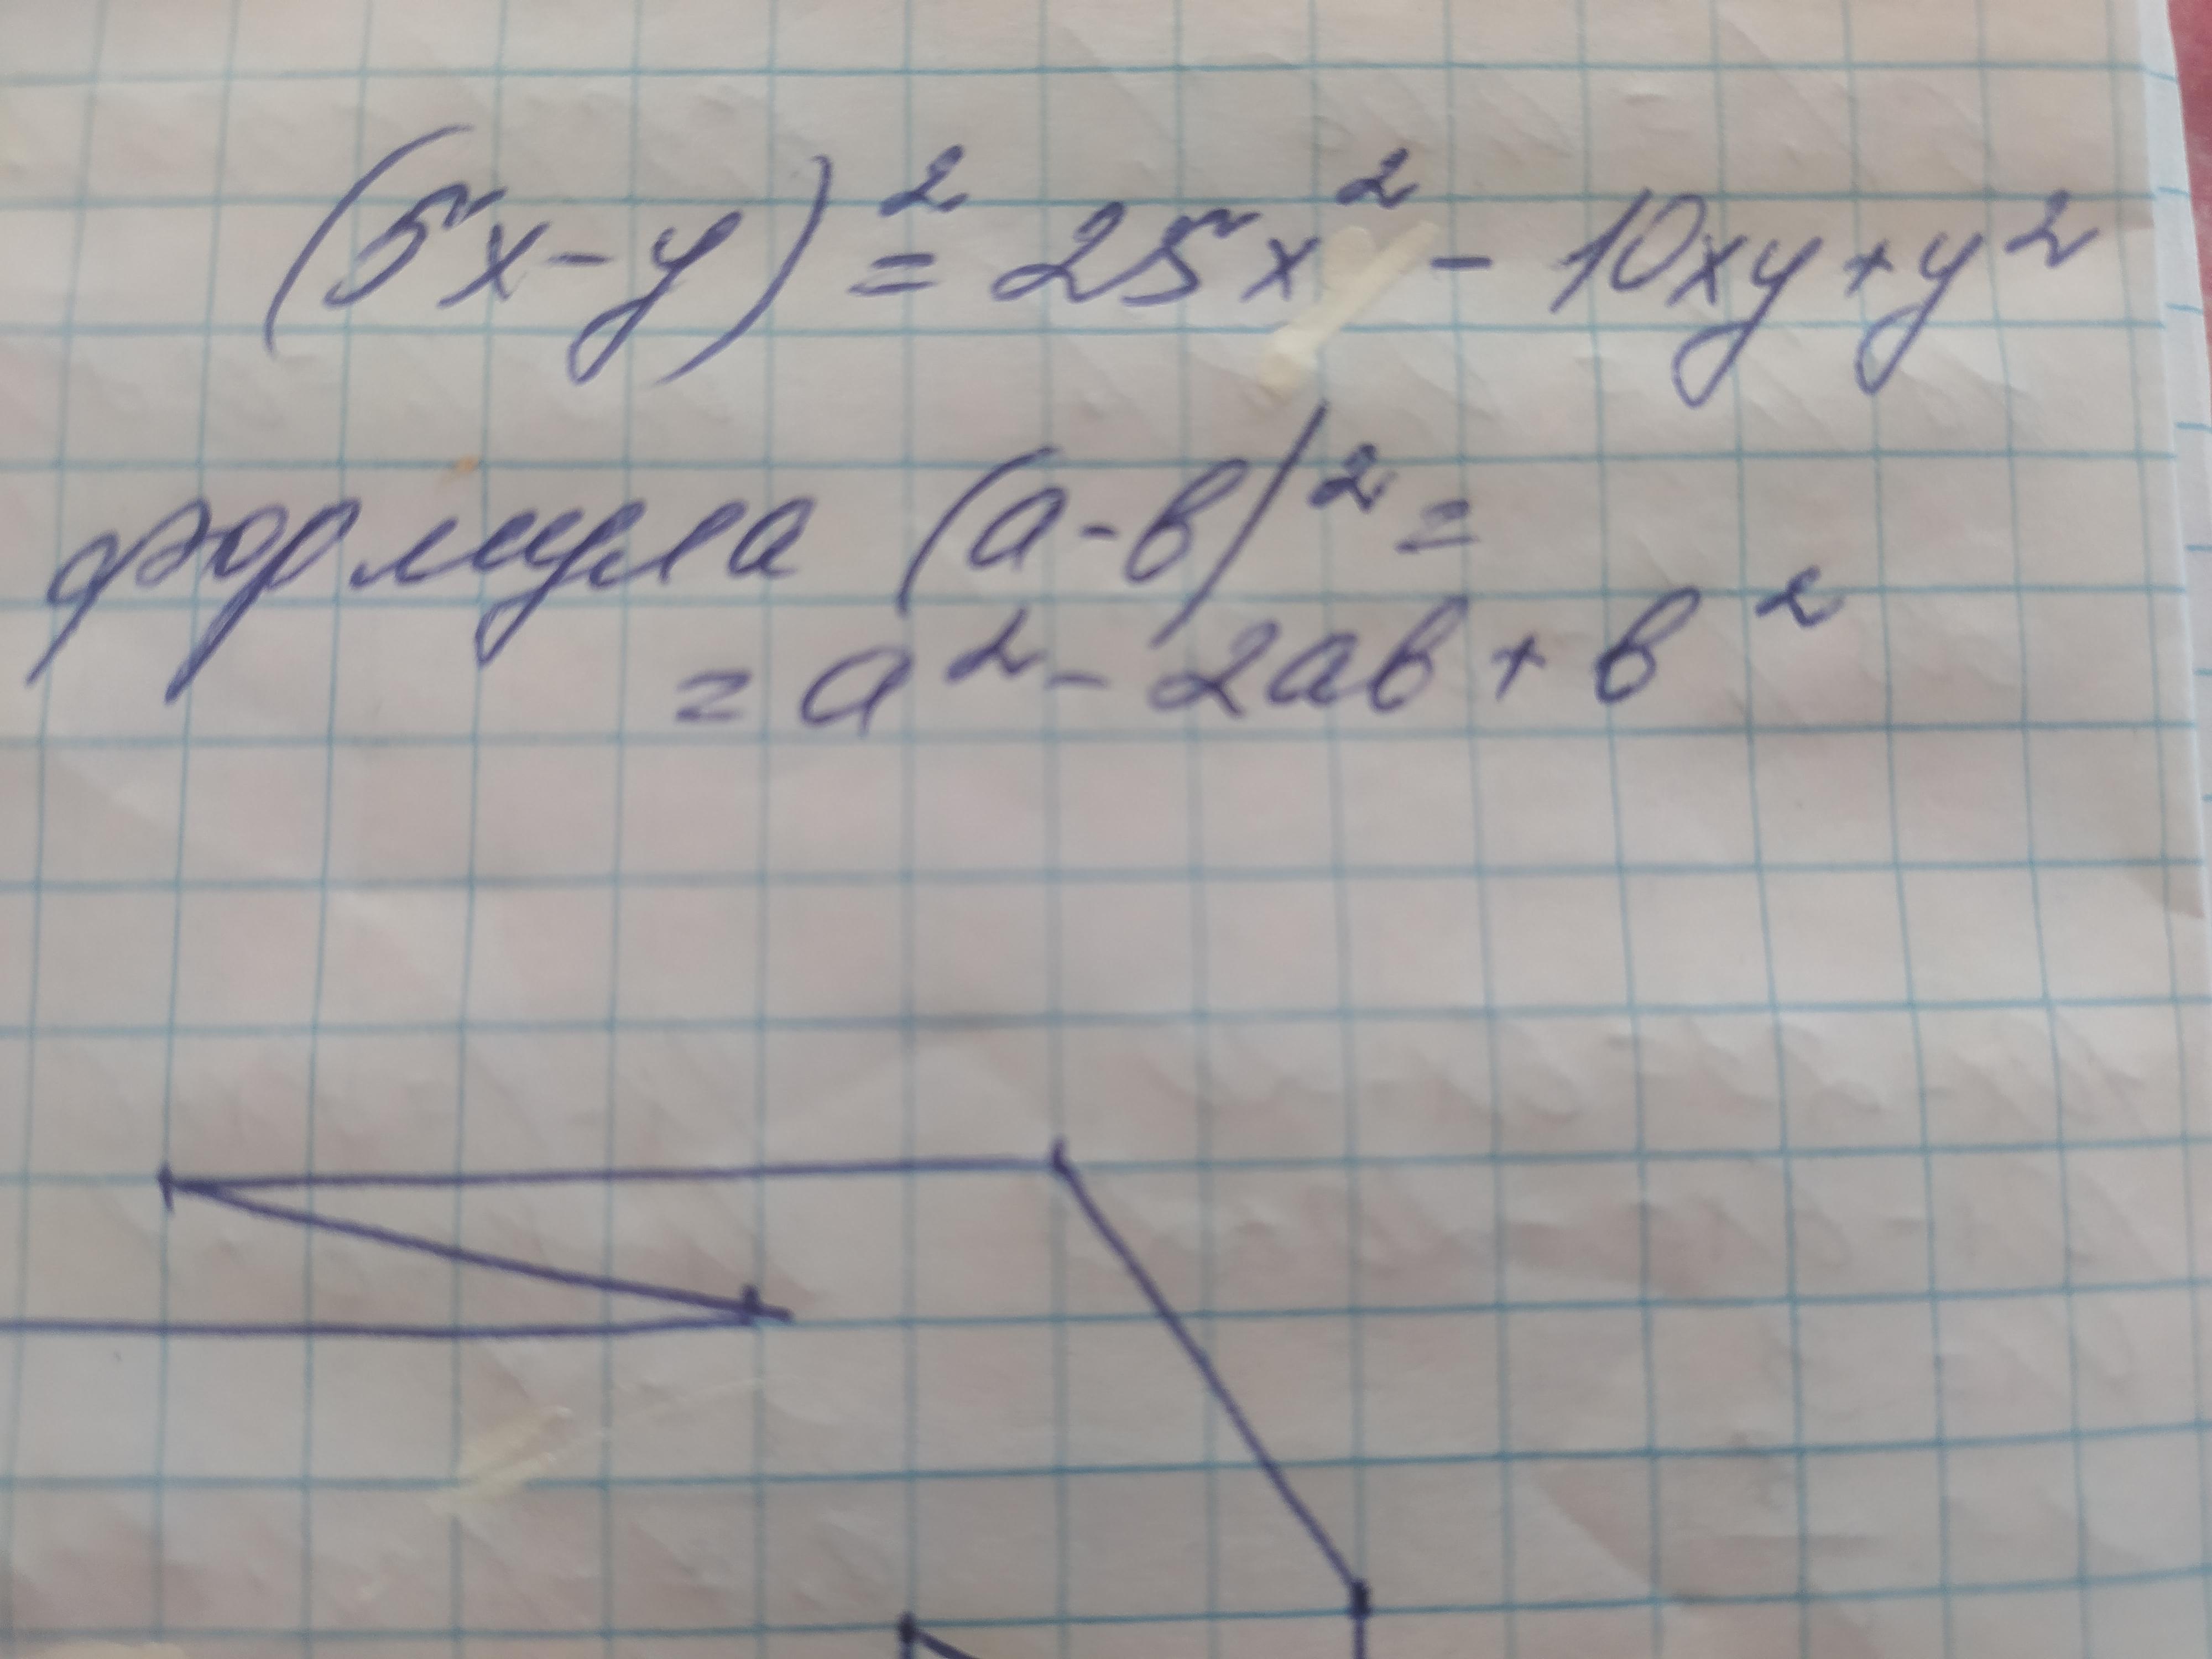 (5x-y)²=25x²-10xy+y²
формула (a-в)²=
=a²-2aв+в²